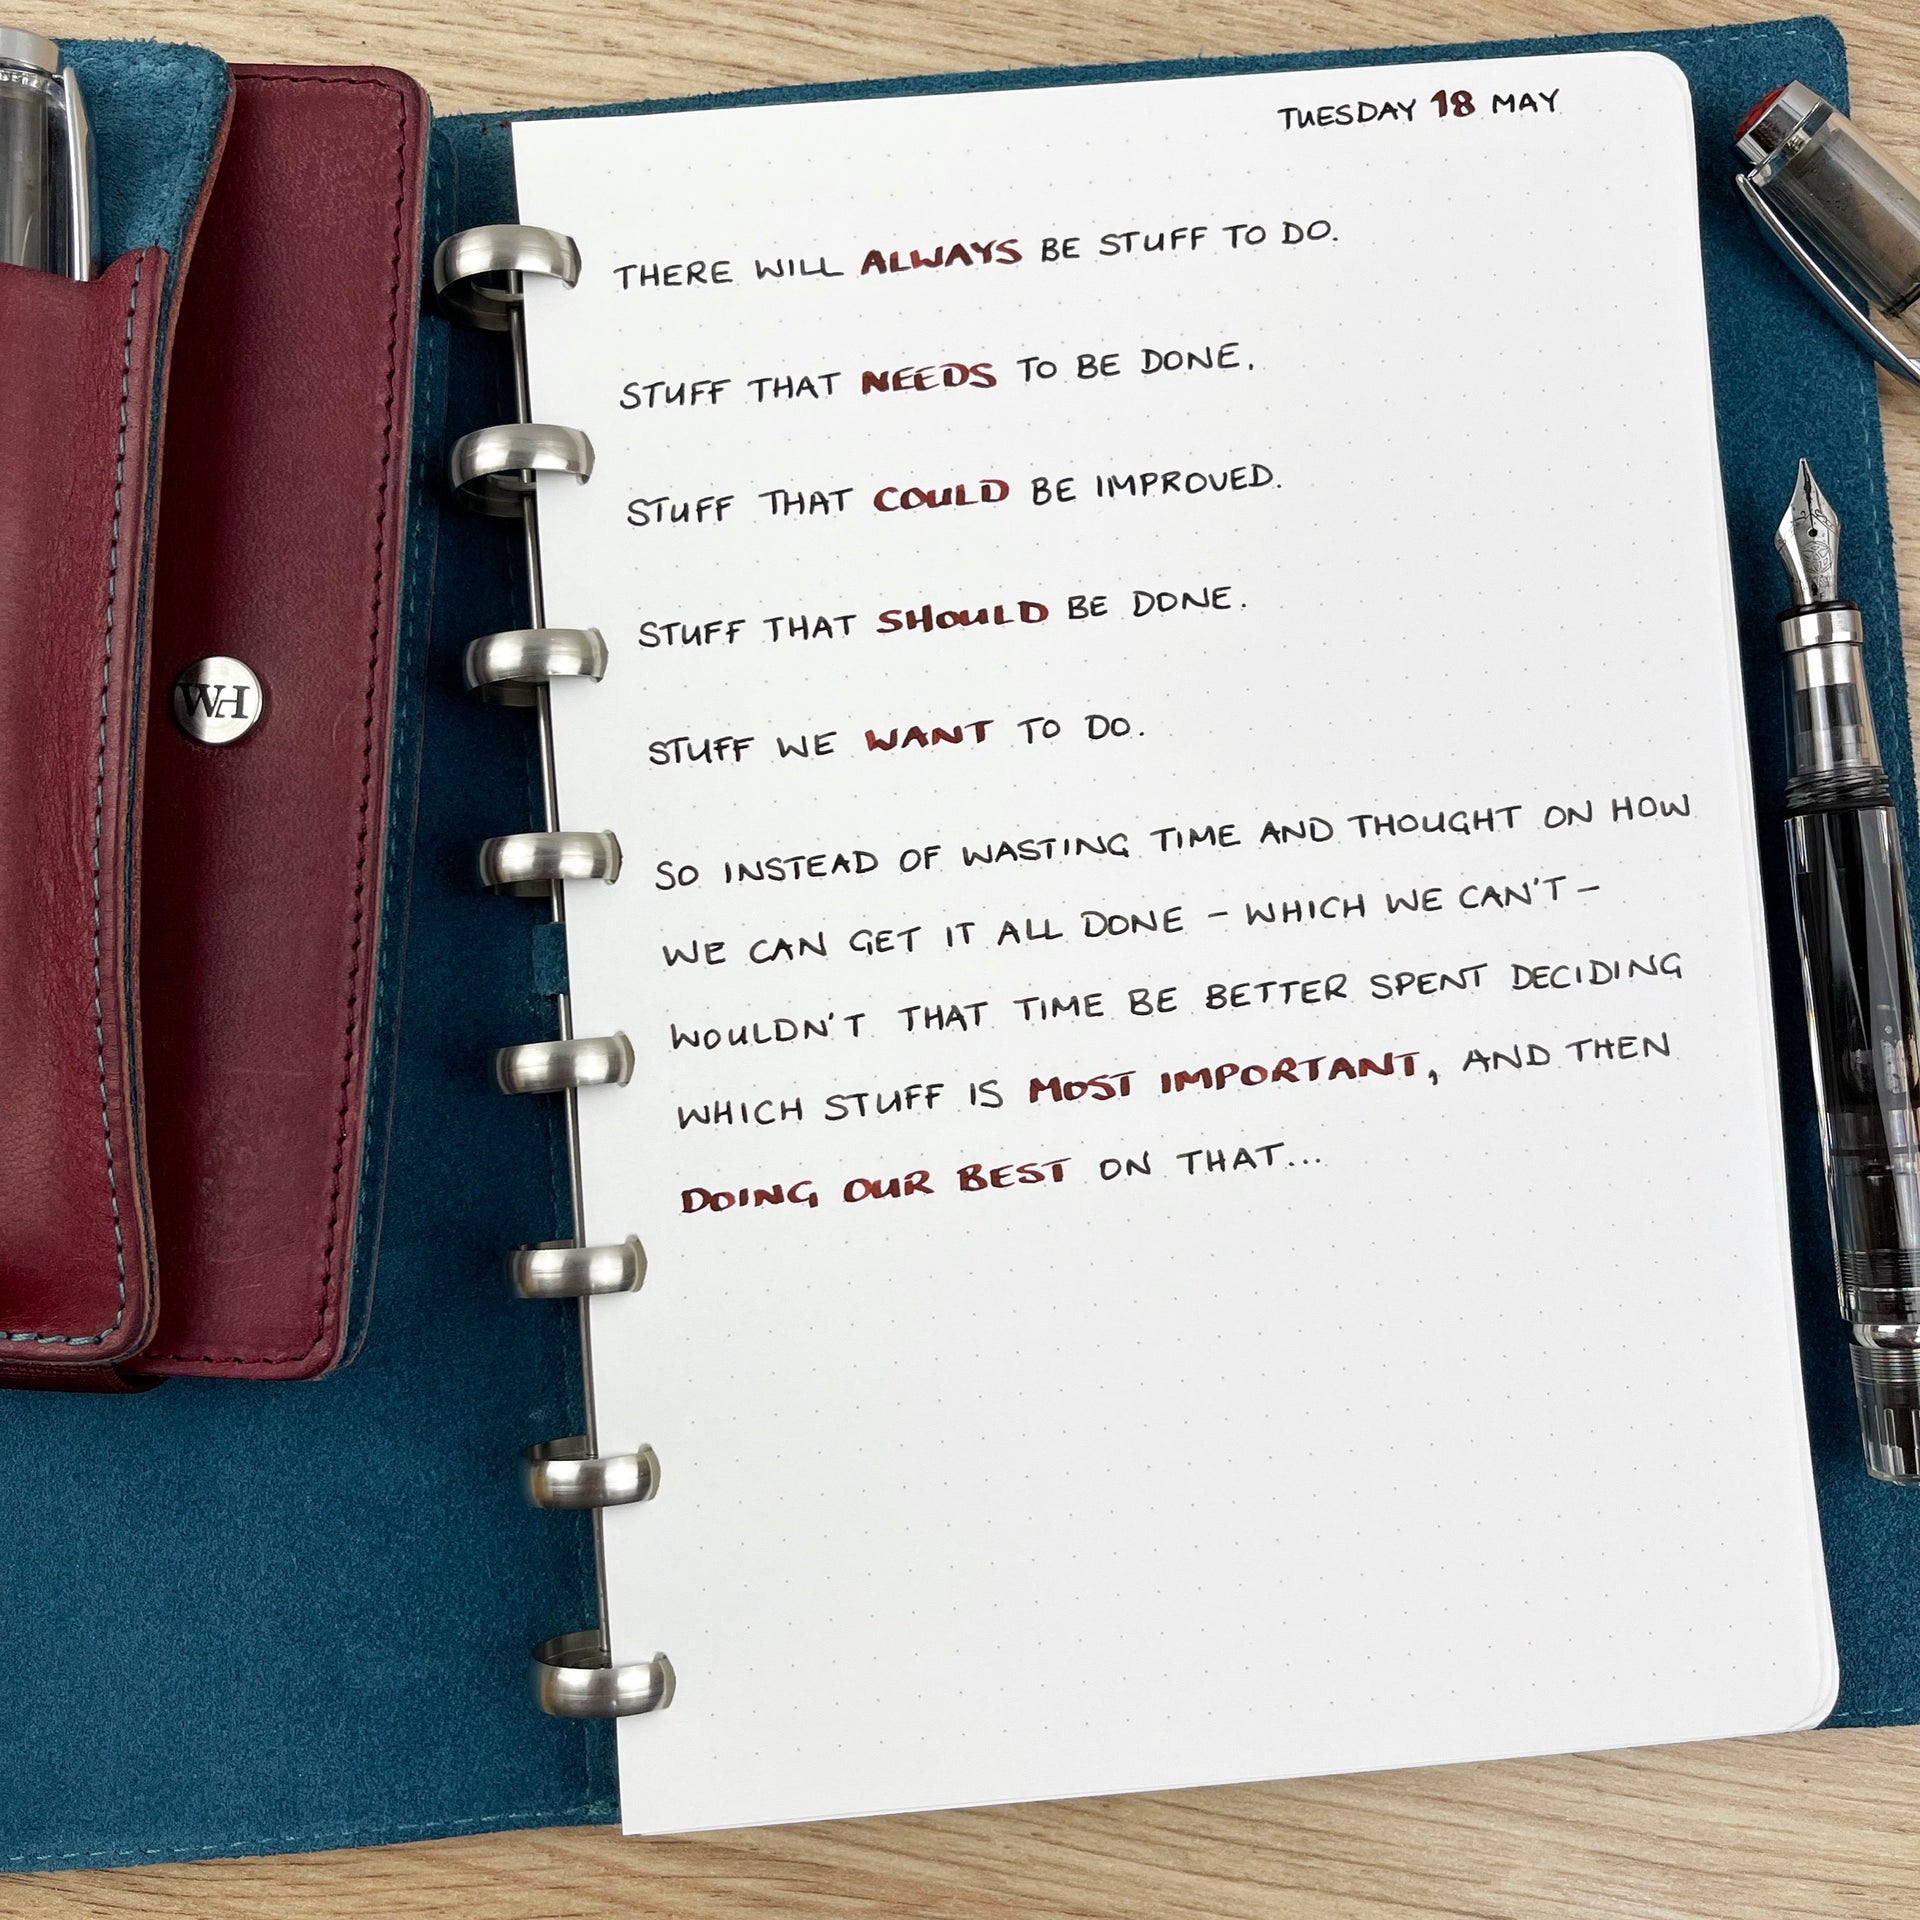 TUESDAY 18 MAY
THERE WILL ALWAYS BE STUFF TO DO.
STUFF THAT NEEDS TO BE DONE.
STUFF THAT COULD BE IMPROVED.
STUFF THAT SHOULD BE DONE.
STUFF WE WANT TO DO.
SO INSTEAD OF WASTING TIME AND THOUGHT ON HOW
WE CAN GET IT ALL DONE – WHICH WE CAN'T –
WOULDN'T THAT TIME BE BETTER SPENT DECIDING
WHICH STUFF IS MOST IMPORTANT, AND THEN
DOING OUR BEST ON THAT...
WH